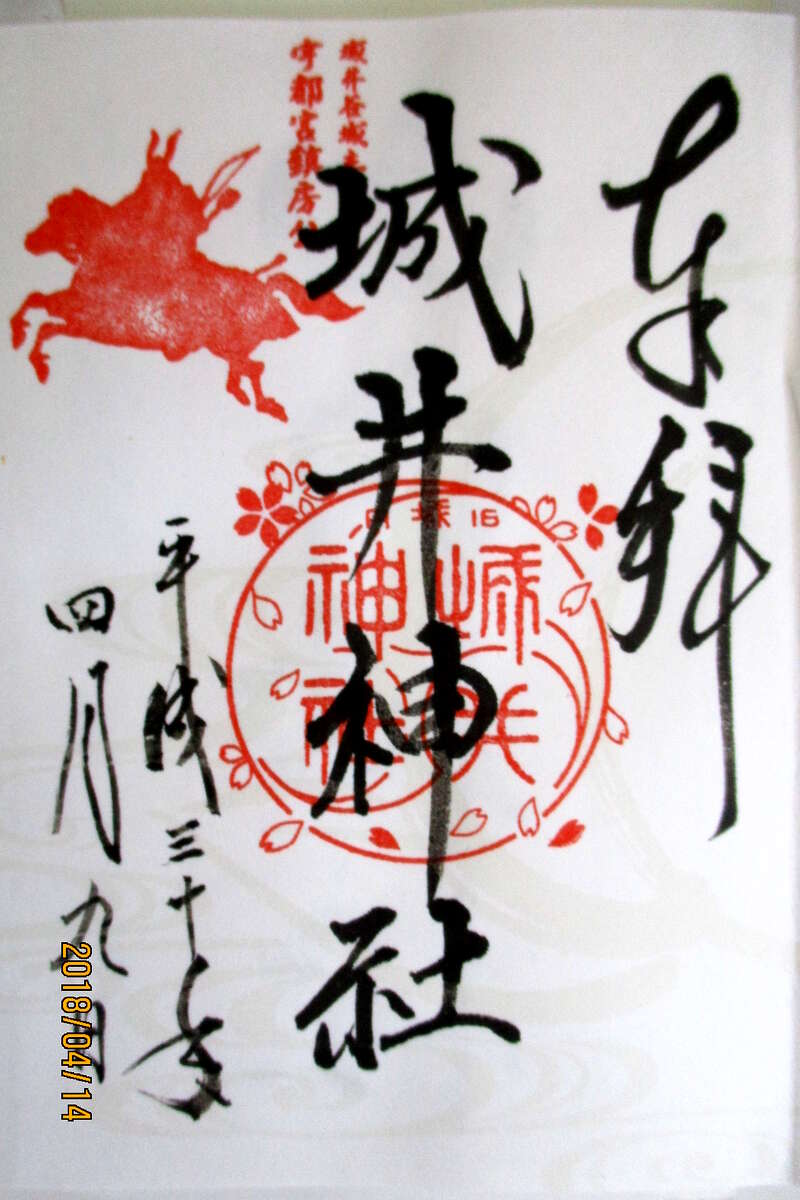 奉拝
城井谷城主
宇都宮鎮房公
城井神社
城井
神社
平成三十年
四月九日
2018/04/14